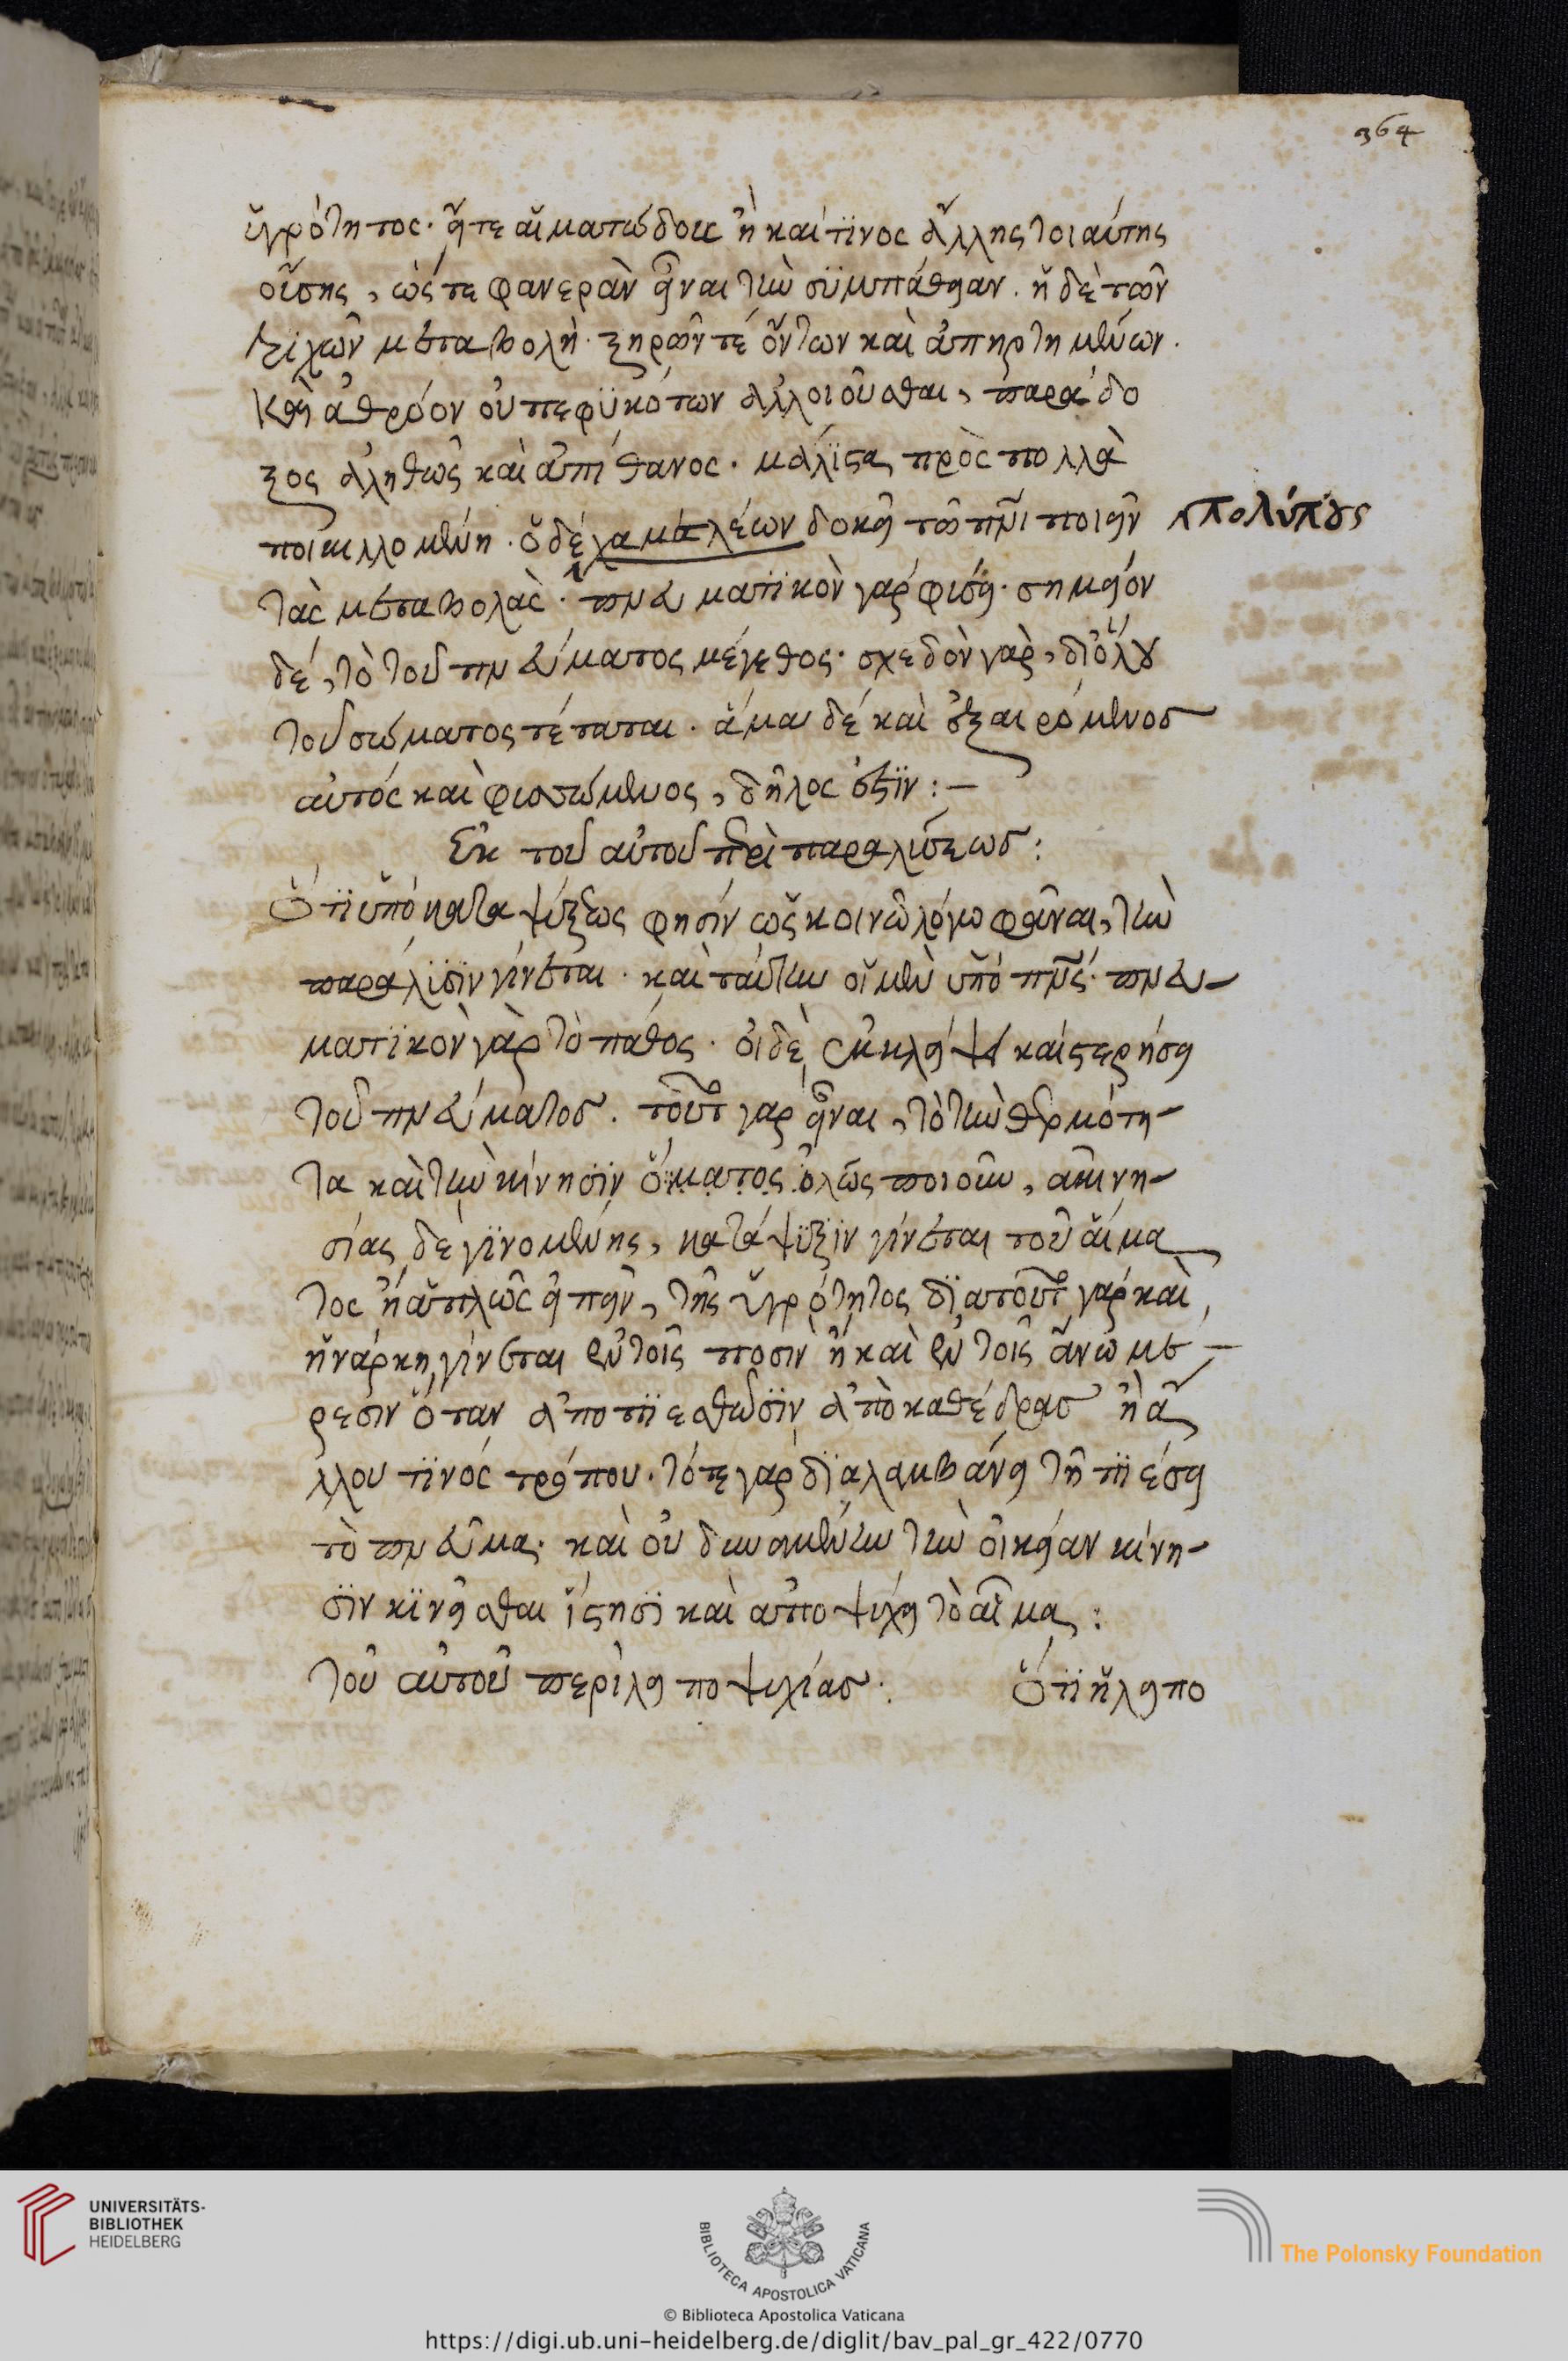 364
ὑγρότητος· εἴτε αἱματώδους ἢ καί τινος ἄλλης τοιαύτης
οὔσης, ὥστε φανερὰν εἶναι τὴν συμπάθειαν. ἡ δὲ τῶν
τριχῶν μεταβολὴ· ξηρῶν τέ ὄντων καὶ ἀπηρτημένων·
καὶ ἀθρόον οὐ πεφυκότων ἀλλοιοῦσθαι, παράδο
ξος ἀληθῶς καὶ ἀπίθανος· μάλιστα πρὸς πολλὰ
ποικιλλομένη· ὁ δὲ χαμαιλέων δοκεῖ τῶ πνεύματι ποιεῖν πολύπους
τὰς μεταβολάς· πνευματικὸν γὰρ φύσει· σημεῖον
δέ, τὸ τοῦ πνεύματος μέγεθος· σχεδὸν γὰρ, δι' ὅλου
τοῦ σώματος τέταται· ἅμα δέ καὶ ἐξαιρόμενος
αὐτός καὶ φυσώμενος, δῆλος ἐστίν:—
Ἐκ τοῦ αὐτοῦ περὶ παραλύσεως:
Ὅτι ὑπὸ καταψύξεως φησίν ὡς κοινῶ λόγω φᾶναι, τὴν
παράλυσιν γίνεται· καὶ ταύτην οἱ μὲν ὑπὸ πνεύματος· πνευ-
ματικὸν γὰρ τὸ πάθος· οἱ δὲ, ἐκλείψει καὶ στερήσει
τοῦ πνεύματος. τοῦτο γὰρ εἶναι, τὸ τὴν θερμότη-
τα καὶ τὴν κίνησιν ὄματος ὅλως ποιοῦν, ἀκινη-
σίας δὲ γινομένης, κατάψυξιν γίνεται τοῦ αἵμα
τος ἢ ἁπλῶς εἰπεῖν, τῆς ὑγρότητος διατοῦτο γὰρ καὶ
ἡ νάρκη γίνεται ἐν τοῖς ποσὶν ἢ καὶ ἐν τοῖς ἄνω μέ-
ρεσιν ὅταν ἀποπιεσθῶσιν ἀπὸ καθέδρας ἢ ἄ
λλου τινός τρόπου· τότε γὰρ διαλαμβάνει τῆ πιέσει
τὸ πνεῦμα· καὶ οὐ δυναμένην τὴν οἰκείαν κίνη-
σιν κινεῖσθαι ἵστησι καὶ ἀποψύχει τὸ αἷμα:
Τοῦ αὐτοῦ περὶ λειποψυχίας: Ὅτι ἡ λειπο
UNIVERSITÄTS-
BIBLIOTHEK
HEIDELBERG
BIBLIOTECA APOSTOLICA VATICANA
The Polonsky Foundation
© Biblioteca Apostolica Vaticana
https://digi.ub.uni-heidelberg.de/diglit/bav_pal_gr_422/0770